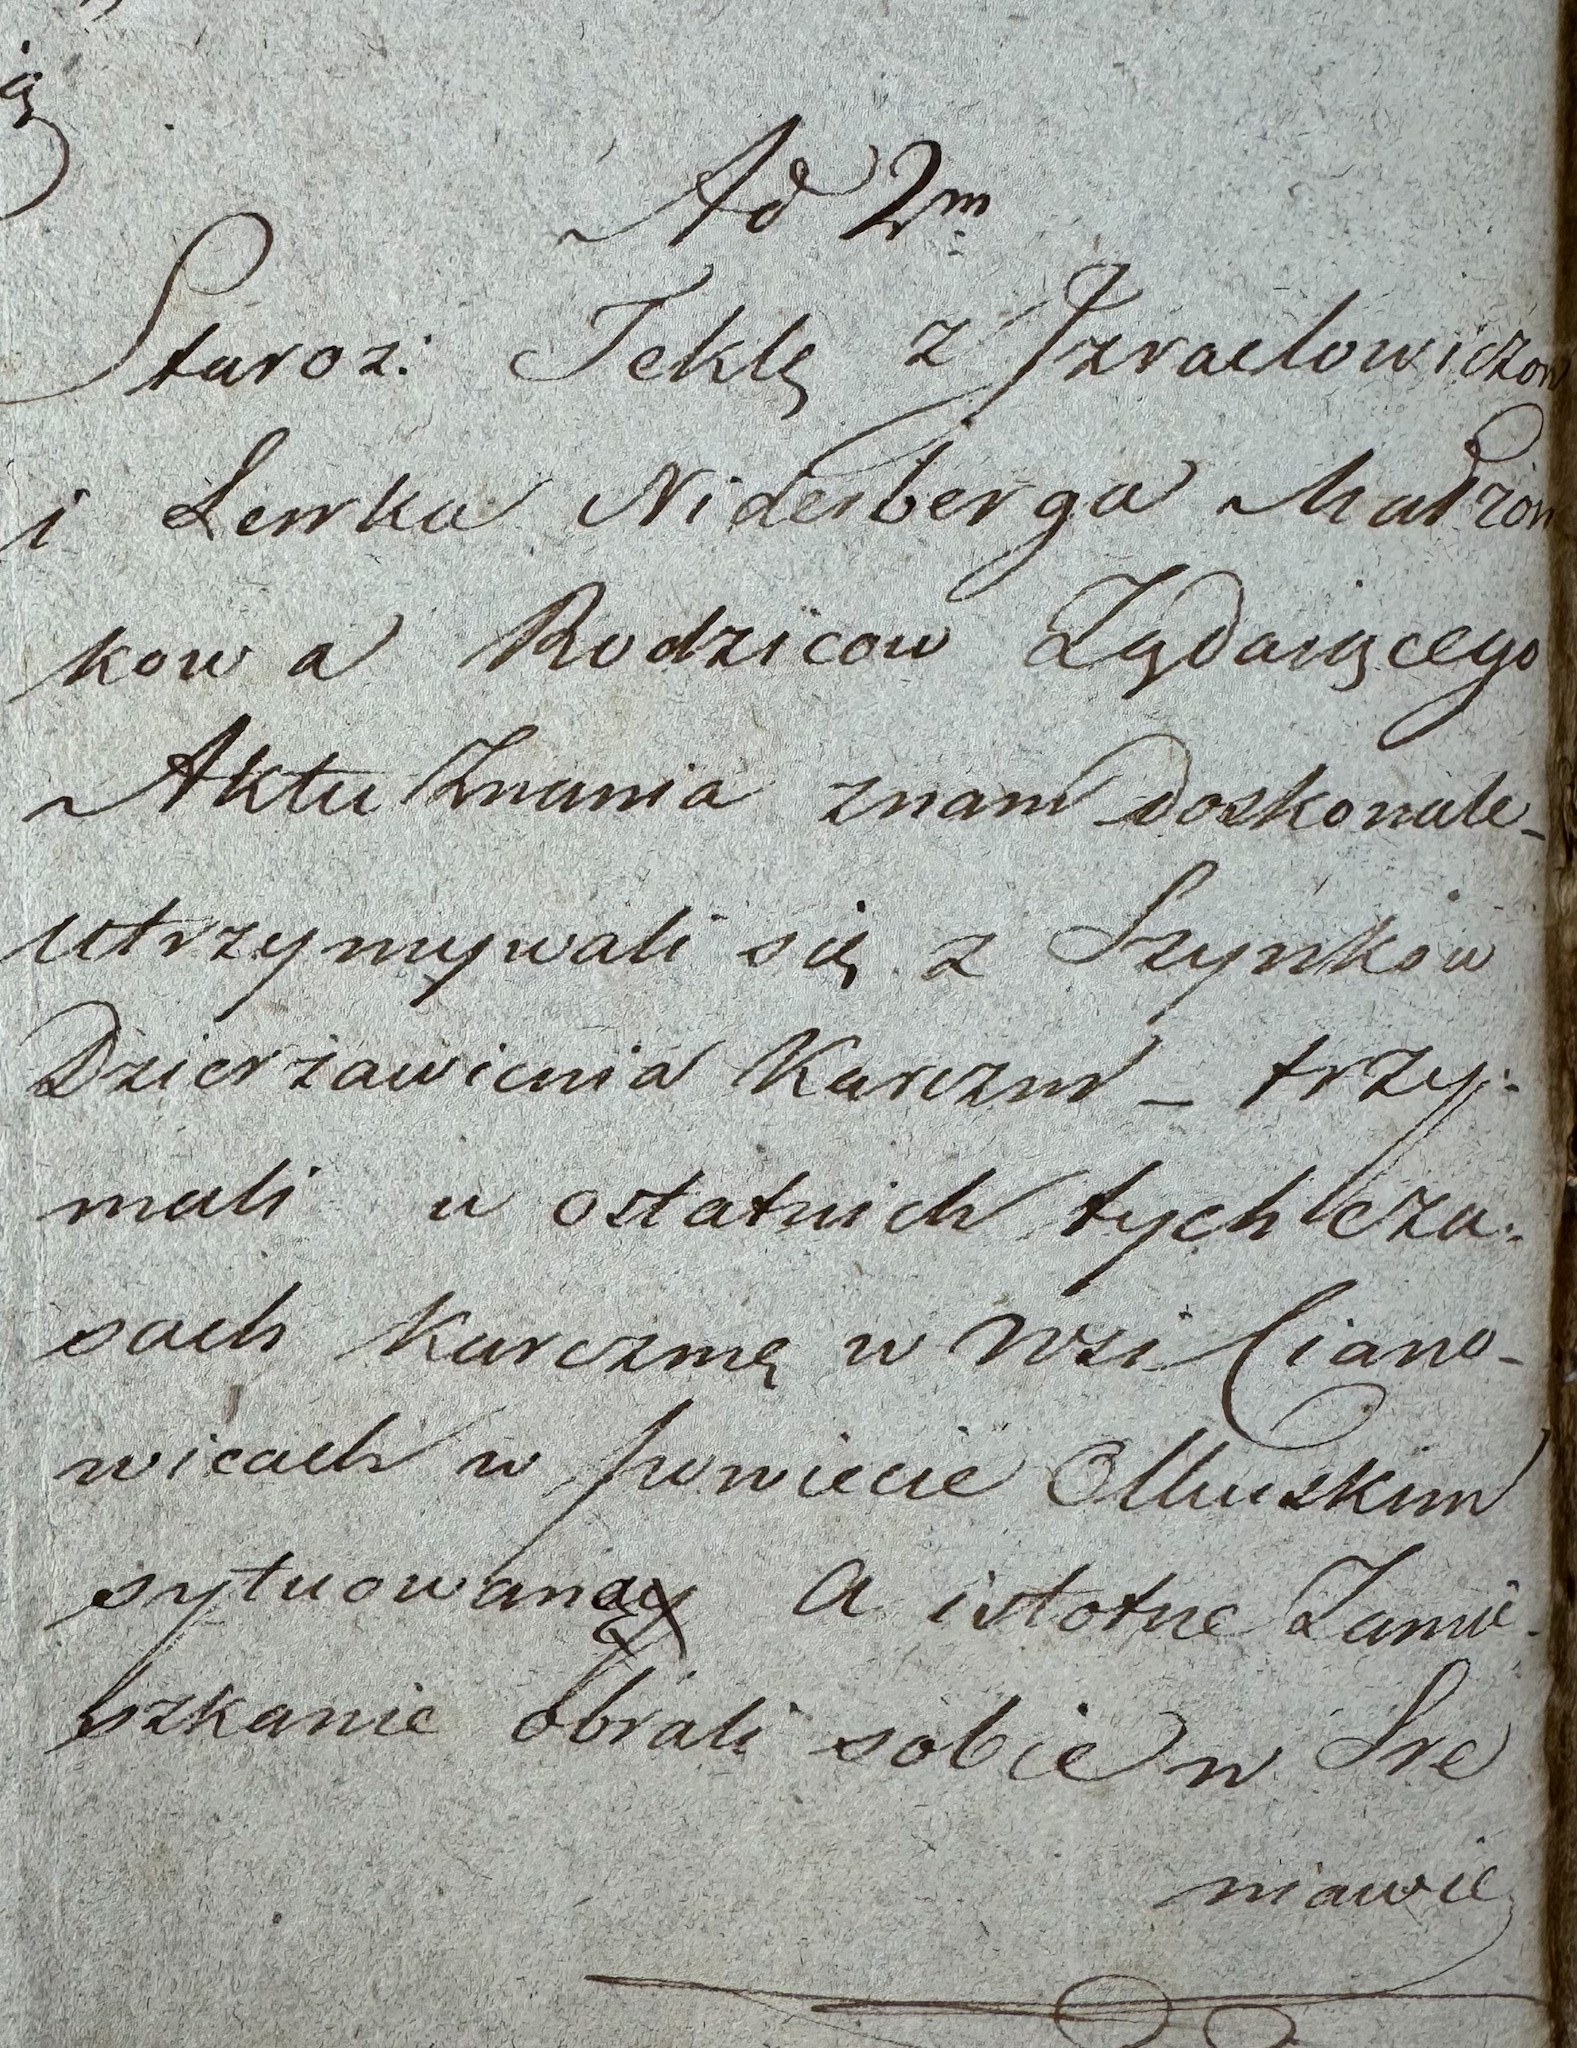 ią
Ad 2m
Staroz: Teklę z Jzraelowiczow
i Lewka Niderberga Małżon
kow a Rodzicow Żądaiącego
Aktu Znania znam doskonale_
utrzymywali się z Szynkow
Dzierżawienia Karczm _ trzy:
mali w ostatnich tych cza:
sach karczmę w Wsi Ciano_
wicach w powiecie Olkuskim
sytuowaną A istotne Zamie_
szkanie obrali sobie w Sre
niawie